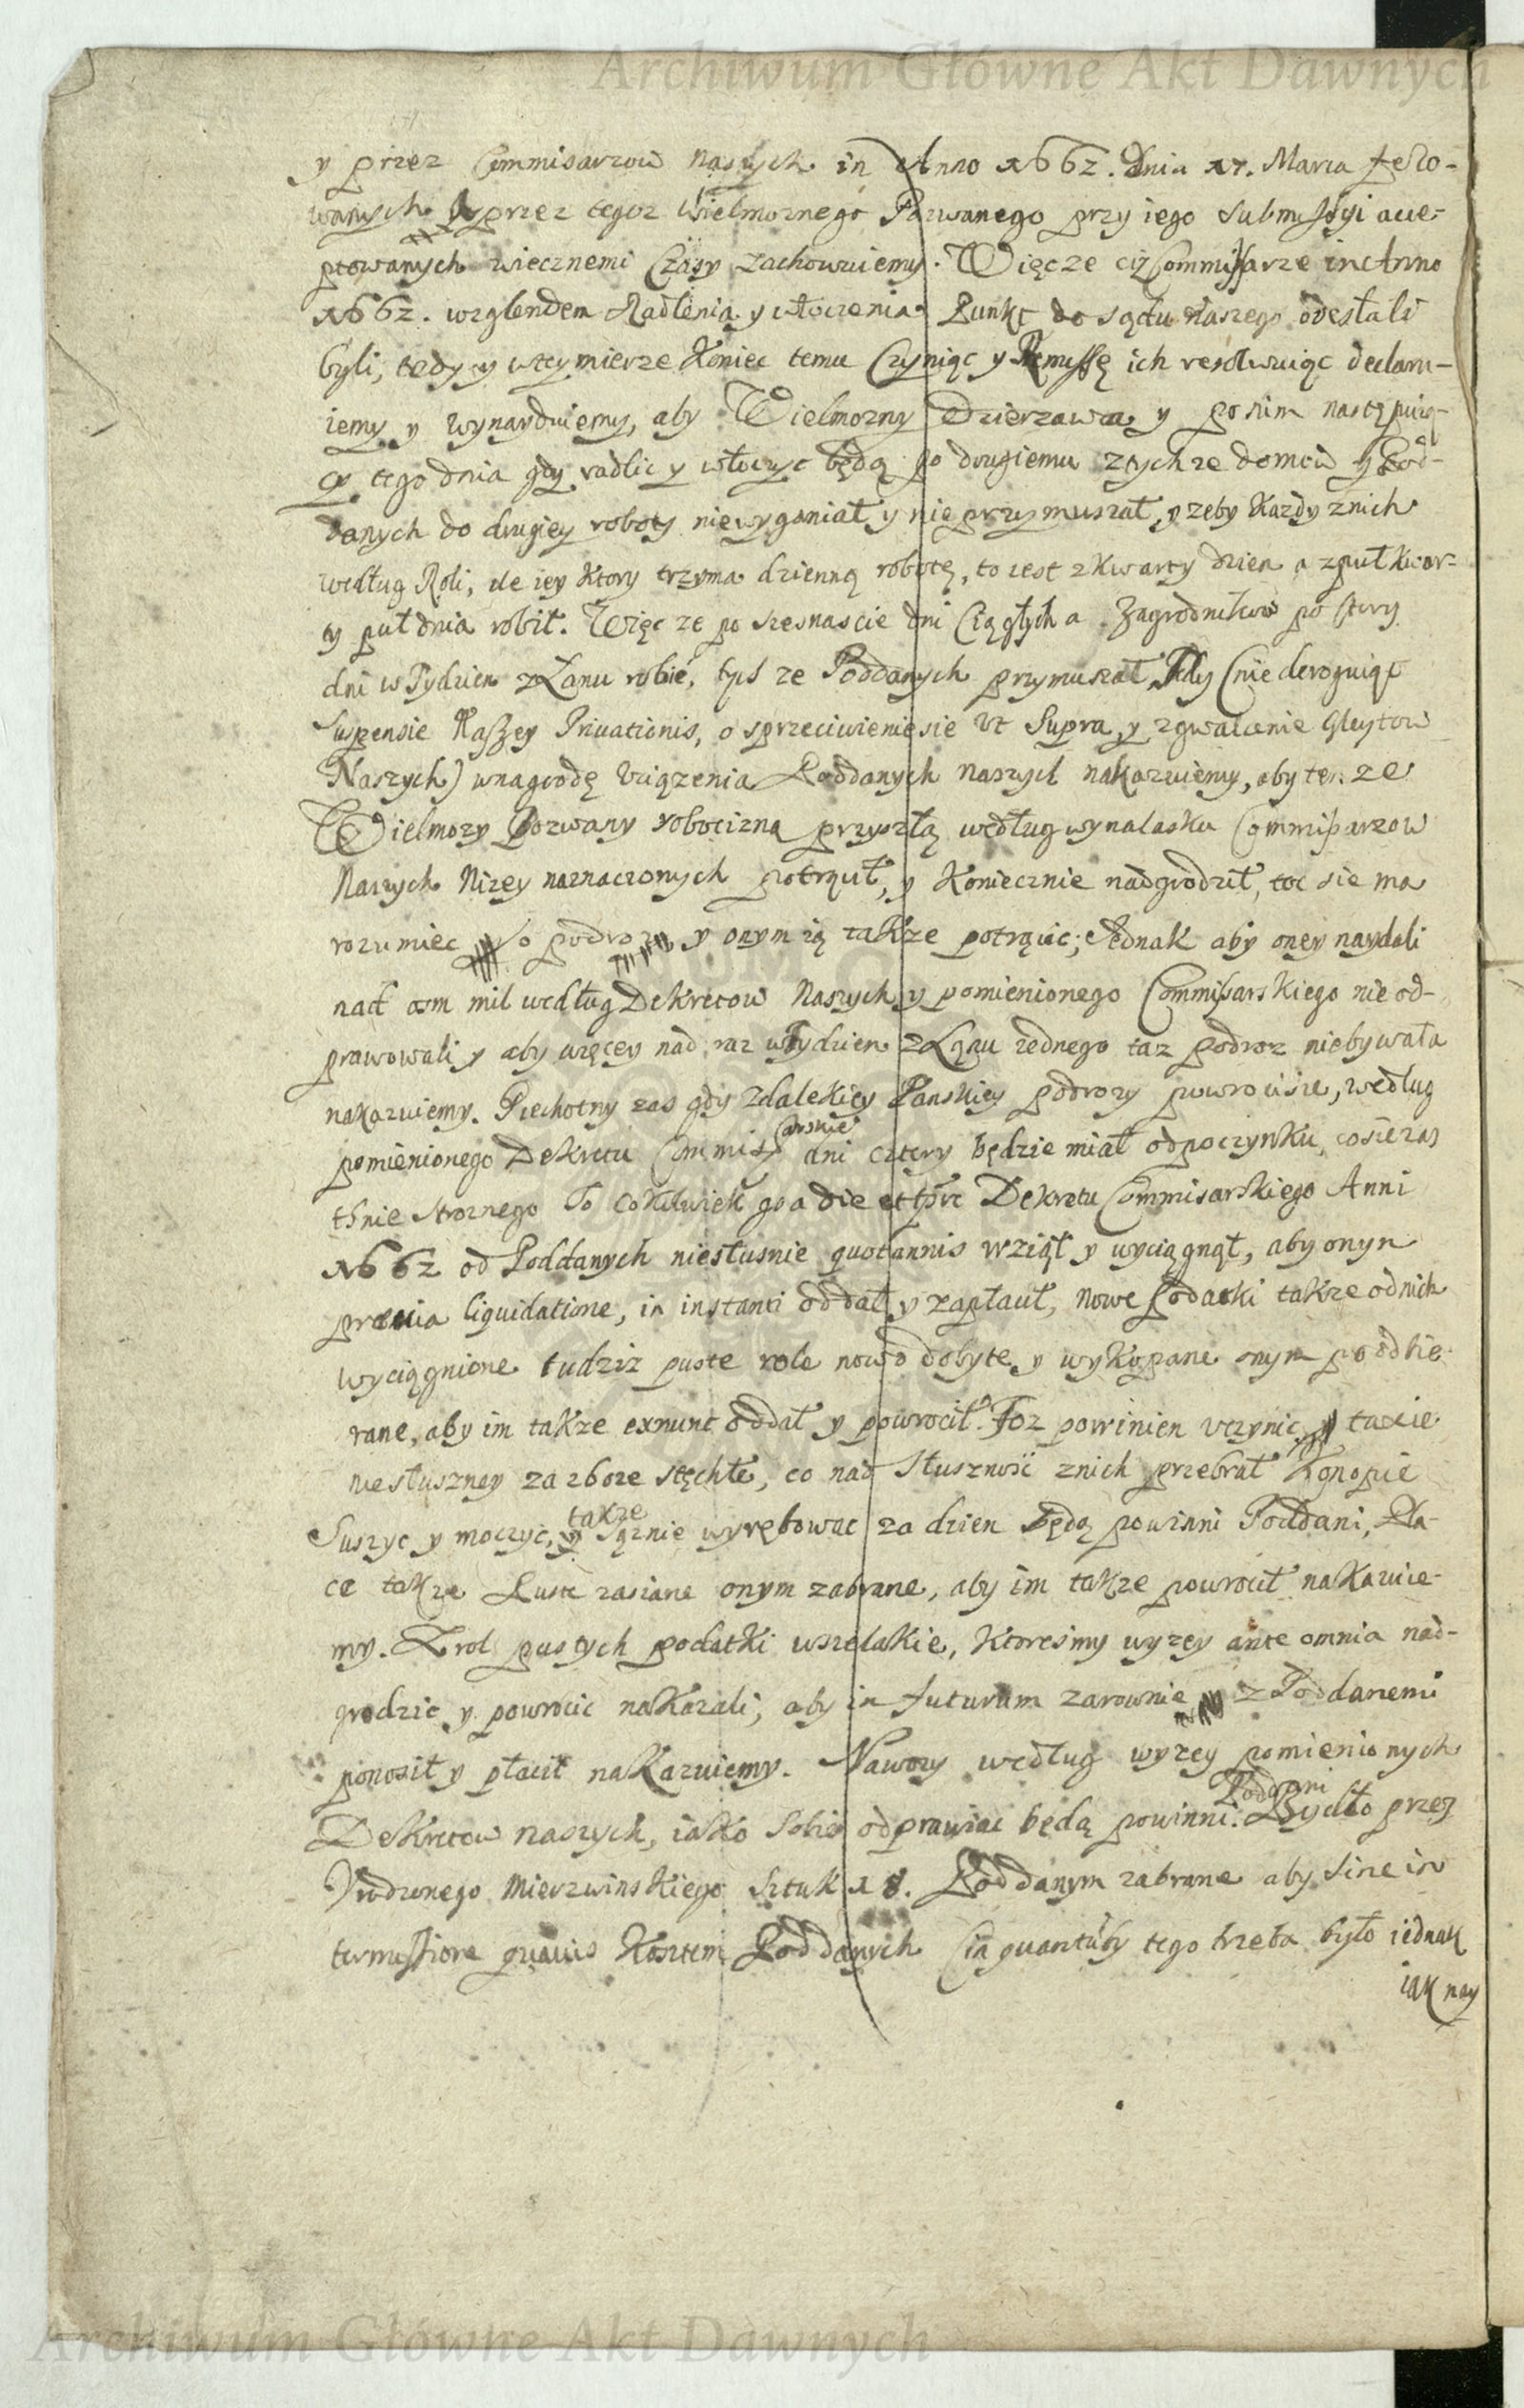 Archiwum Główne Akt Dawnych
y przez Commisarzow naszych in Anno 1662. Dnia 17. Marca fero-
wanych y przez tegoz Wielmoznego Pozwanego przy iego submissyi acce-
ptowanych wiecznemi Czasy zachowuiemy. Więc ze ciz Commissarze in Anno
1662. wzglendem Radlenia y włoczenia Punkt do sądu naszego odesłali
byli, tedy y wtey mierze Koniec temu Czyniąc y Remissę ich resolwuiąc declaru-
iemy y wynayduiemy, aby Wielmozny Dzierzawca y po nim następuią-
cy tego dnia gdy radlic y włoczyc będą po drugiemu z tychze domow y Pod-
danych do drugiey roboty niewyganiał y nie przymuszał, y zeby Kazdy znich
według Roli, ile iey Ktory trzyma dzienną robotę, to iest z kwarty dzien a zpuł kwar-
ty puł dnia robił. Więc ze po szesnascie dni Ciągłych a Zagrodnikow po sztery
dni w Tydzien z Łanu robić, tych ze Poddanych przymuszał, Tedy (nie deroguiąc
suspensie Naszey Priuationis, o sprzeciwienie sie vt Supra, y zgwałcenie Gleytow
Naszych) wnagrodę Vciązenia Poddanych naszych nakazuiemy, aby ten ze
Wielmozy Pozwany robocizną przyszłą według wynalasku Commissarzow
Naszych Nizey naznaczonych potrącił, y Koniecznie nadgrodził, toc sie ma
rozumiec y o podrozy y onym ią takze potrącic; Jednak aby oney nay dali
nad osm mil według Dekretow Naszych y pomienionego Commissarskiego nie od-
prawowali y aby więcey nad raz w Tydzien z Łanu iednego taz podroz niebywała
nakazuiemy. Piechotny zas gdy zdalekiey Panskiey podrozy powroci sie, według
pomienionego Dekretu Commissarskie dni cztery będzie miał odpoczynku, co sie zas
tknie stroznego To cokolwiek go a die et Dekretu Commisarskiego Anni
1662 od Poddanych niesłusnie quotannis wziął y wyciągnął, aby onym
præuia liquidatione, in instanti oddał y zapłacił, nowe podatki takze od nich
wyciągnione tudziz puste role nowo dobyte y wykopane onym poodbie-
rane, aby im takze exnunc oddał y powrocił. Toz powinien vczynic y
niesłuszney za zboze stęchłe, co nad słusznosć znich przebrał Konopie
suszyc y moczyc, takze y Sąznie wyrębowac za dzien będą powinni Poddani, Pla-
ce takze Puste zasiane onym zabrane, aby im takze powrocił nakazuie-
my. Z rol pustych podatki wszelakie, Ktoresmy wyzey ante omnia nad-
grodzic y powrocic nakazali, aby in futurum zarownie z Poddanemi
ponosił y płacił nakazuiemy. Nawozy według wyzey pomienionych
Dekretow naszych, iako Sobie odprawiac będą powinni Poddani. Bydło przez
Vrodzonego Mierzwinskiego Sztuk 18. Poddanym zabrane aby sine in
termissione quauis Kosztem Poddanych (in quantuby tego trzeba było iednak
iak nay
Archiwum Główne Akt Dawnych